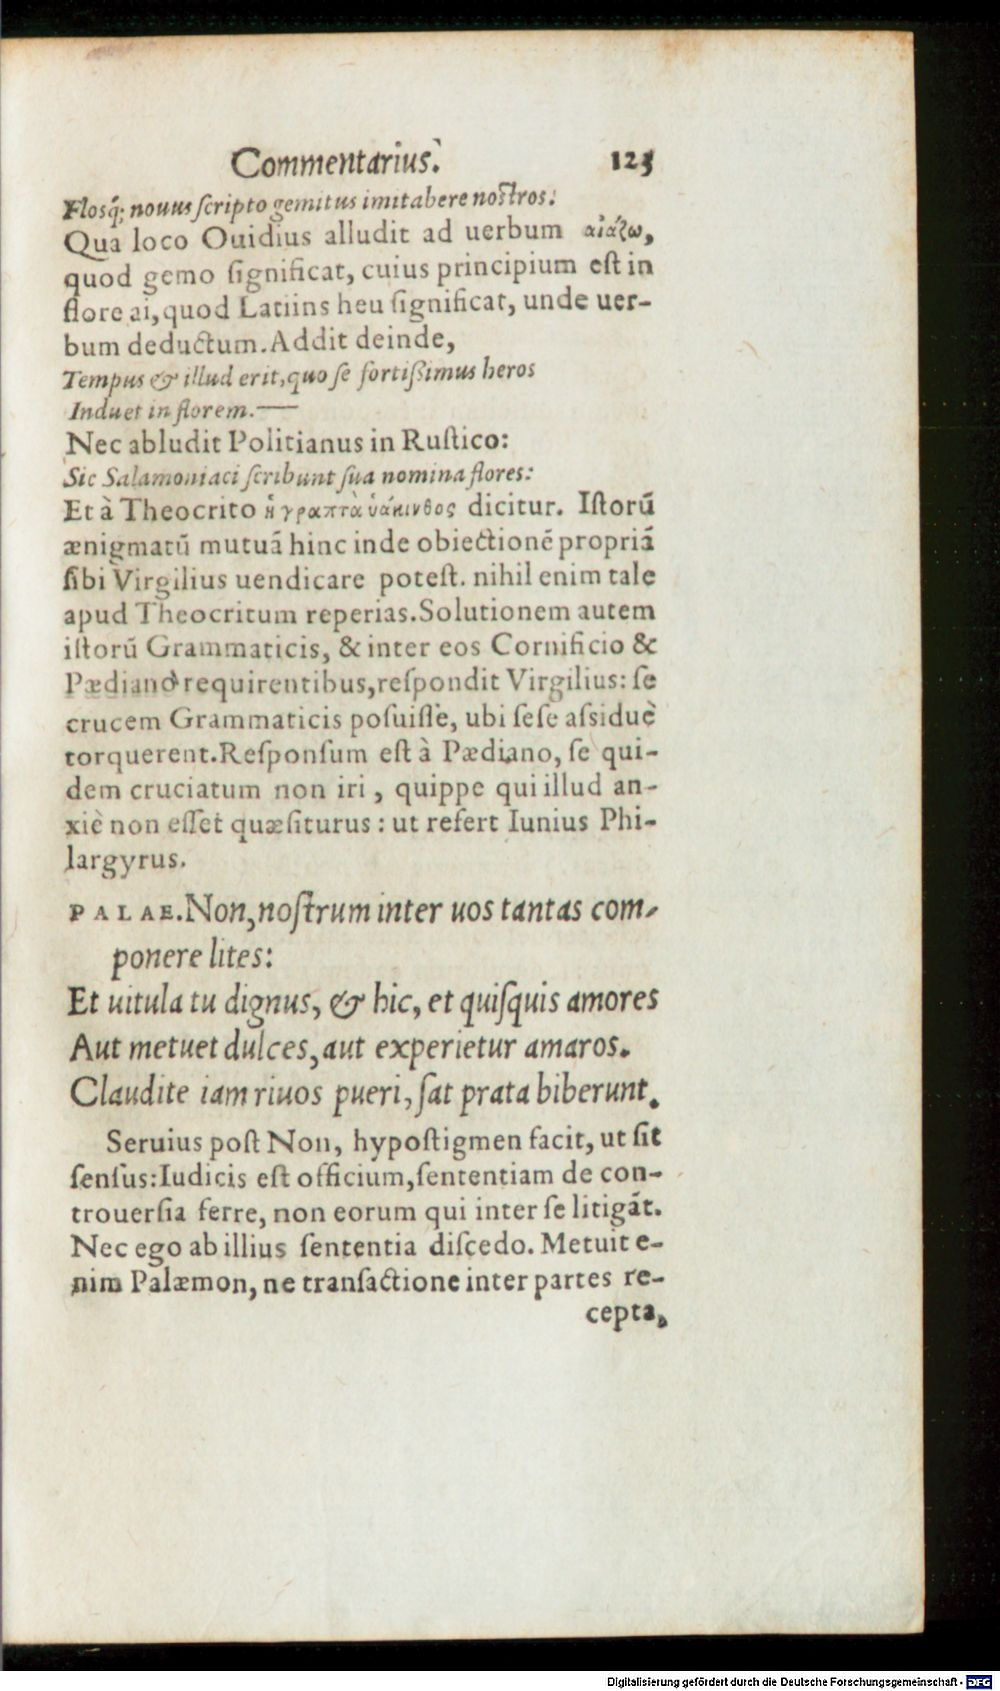 Commentarius. 123
Flosq́; nouus scripto gemitus imitabere nostros:
Qua loco Ouidius alludit ad uerbum αἰάζω,
quod gemo significat, cuius principium est in
flore ai, quod Latiins heu significat, unde uer-
bum deductum. Addit deinde,
Tempus & illud erit, quo se fortißimus heros
Induet in florem.——
Nec abludit Politianus in Rustico:
Sic Salamoniaci scribunt sua nomina flores:
Et à Theocrito ἁ γραπτὰ ὑάκινθος dicitur. Istorũ
ænigmatũ mutuã hinc inde obiectionẽ propriã
sibi Virgilius uendicare potest. nihil enim tale
apud Theocritum reperias. Solutionem autem
istorũ Grammaticis, & inter eos Cornificio &
Pædiano requirentibus, respondit Virgilius: se
crucem Grammaticis posuisse, ubi sese assiduè
torquerent. Responsum est à Pædiano, se qui-
dem cruciatum non iri, quippe qui illud an-
xiè non esset quæsiturus: ut refert Iunius Phi-
largyrus.
PALAE. Non, nostrum inter uos tantas com-
ponere lites:
Et uitula tu dignus, & hic, et quisquis amores
Aut metuet dulces, aut experietur amaros.
Claudite iam riuos pueri, sat prata biberunt.
Seruius post Non, hypostigmen facit, ut sit
sensus: Iudicis est officium, sententiam de con-
trouersia ferre, non eorum qui inter se litigãt.
Nec ego ab illius sententia discedo. Metuit e-
nim Palæmon, ne transactione inter partes re-
cepta,
Digitalisierung gefördert durch die Deutsche Forschungsgemeinschaft - DFG